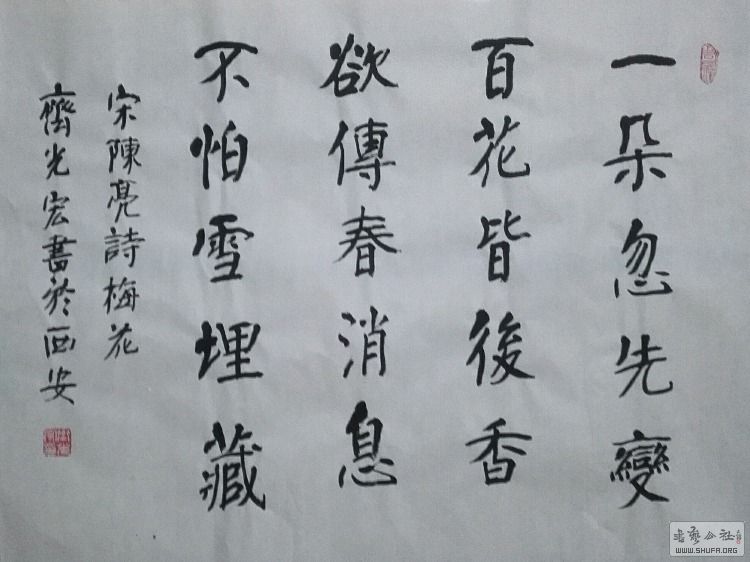 一朵忽先變
百花皆後香
欲傳春消息
不怕雪埋藏
宋陳亮詩梅花
齊光宏書於西安
WWW.SHUFA.ORG